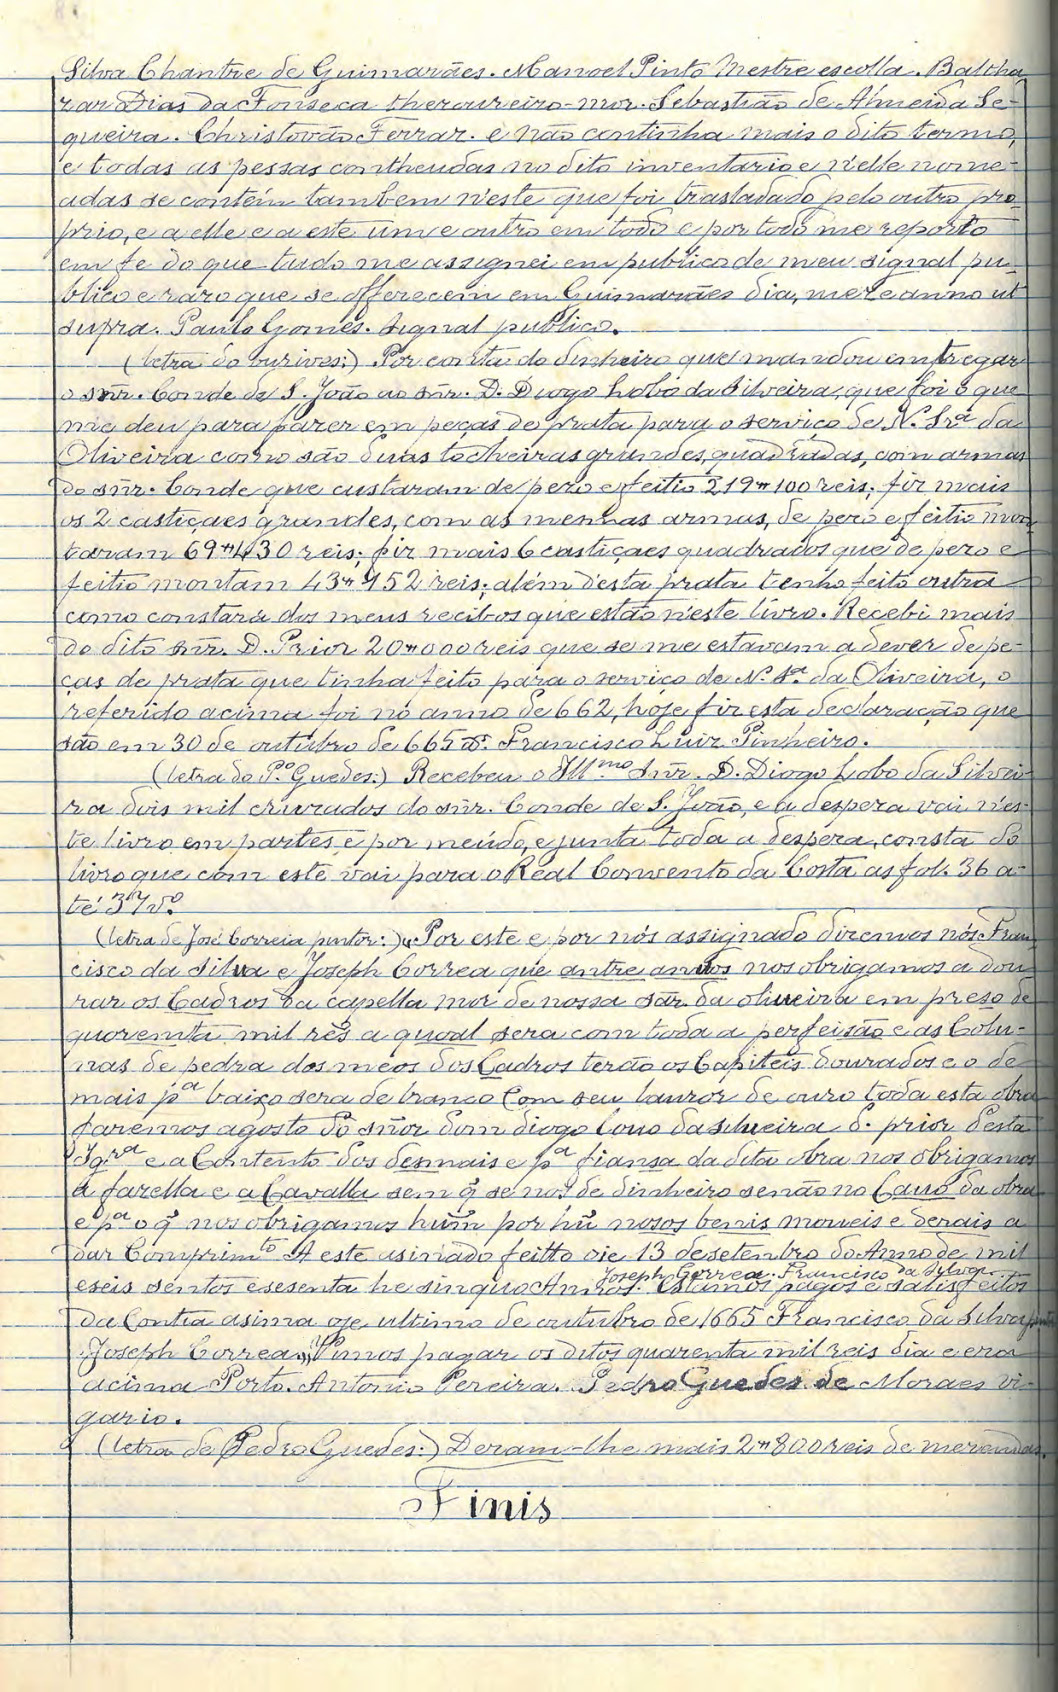 Silva Chantre de Guimarães. Manoel Pinto Mestre escolla. Baltha
zar Dias da Fonseca thezoureiro-mor. Sebastião de Almeida Se-
queira. Christovão Ferraz. e não continha mais o dito termo,
e todas as pessas contheudas no dito inventario e n'elle nome-
adas se contém tambem n'este que foi trasladado pelo outro pro
prio, e a elle e a este um e outro em todo e por todo me reporto
em fe do que tudo me assignei em publico de meu signal pu-
blico e razo que se offerecem em Guimarães dia, mez e anno ut
supra. Paulo Gomes. Signal publico.
(letra do ourives:) Por conta do dinheiro que mandou entregar
o snr. Conde de S. João ao snr. D. Diogo Lobo da Silveira, que foi o que
me deu para fazer em peças de prata para o serviço de N. Snrª da
Oliveira como são duas tocheiras grandes, quadradas, com armas
do snr. Conde que custaram de pezo e feitio 219#100 reis; fiz mais
os 2 castiçaes grandes, com as mesmas armas, de pezo e feitio mon
taram 69#430 reis; fiz mais 6 castiçaes quadrados que de pezo e
feitio montam 43#952 reis; além d'esta prata tenho feito outra
como constará dos meus recibos que estão n'este livro. Recebi mais
do dito snr. D. Prior 20#000 reis que se me estavam a dever de pe-
ças de prata que tinha feito para o serviço de N. Sª. da Oliveira, o
referido acima foi no anno de 662, hoje fiz esta declaração que
são em 30 de outubro de 665 Francisco Luiz Pinheiro.
(letra do Pº. Guedes:) Recebeu o Illmo Snr. D. Diogo Lobo da Silvei-
ra dois mil cruzados do snr. Conde de S. João, e a despeza vai n'es-
te livro em partes e por meúdo, e junta toda a despeza, consta do
livro que com este vai para o Real Convento da Costa as fol. 36 a-
té 37 vº.
(letra de José Correia pintor:) "Por este e por nós assignado dizemos nós Fran
cisco da Silva e Joseph Correa que antre ambos nos obrigamos a dou-
rar os Cadros da capella mor de nossa sãr. da oliueira em preso de
quoremta mil rẽs a quoal sera com toda a perfeisão e as Colu-
nas de pedra dos meos dos Cadros terão os Capiteis dourados e o de
mais pª baixo sera de branco Com seu lauzor de ouro toda esta obra
faremos agosto do sñor dom diogo louo da silueira d. prior desta
Igrª e a Contento dos desmais e pª fiansa da dita obra nos obrigamos
a fazella e a Cavalla sem q̃ se nos de dinheiro senão no Cauo da obra
e pª o q̃ nos obrigamos hum por hũ nosos benis moueis e derais a
dar Comprimto A este asinado feitto oie 13 desetembro do Anno de mil
Joseph Correa. Francisco da Sylva.
eseis sentos esesenta he sinquo Annos. Estamos pagos e satisfeitos
da Contia asima oje ultimo de outubro de 1665 Francisco da Silva
Joseph Correa. Vimos pagar os ditos quarenta mil reis dia e era
acima Porto. Antonio Pereira. Pedro Guedes de Moraes vi-
gario.
(letra de Pedro Guedes:) Deram-lhe mais 2#800 reis de merendas.
Finis